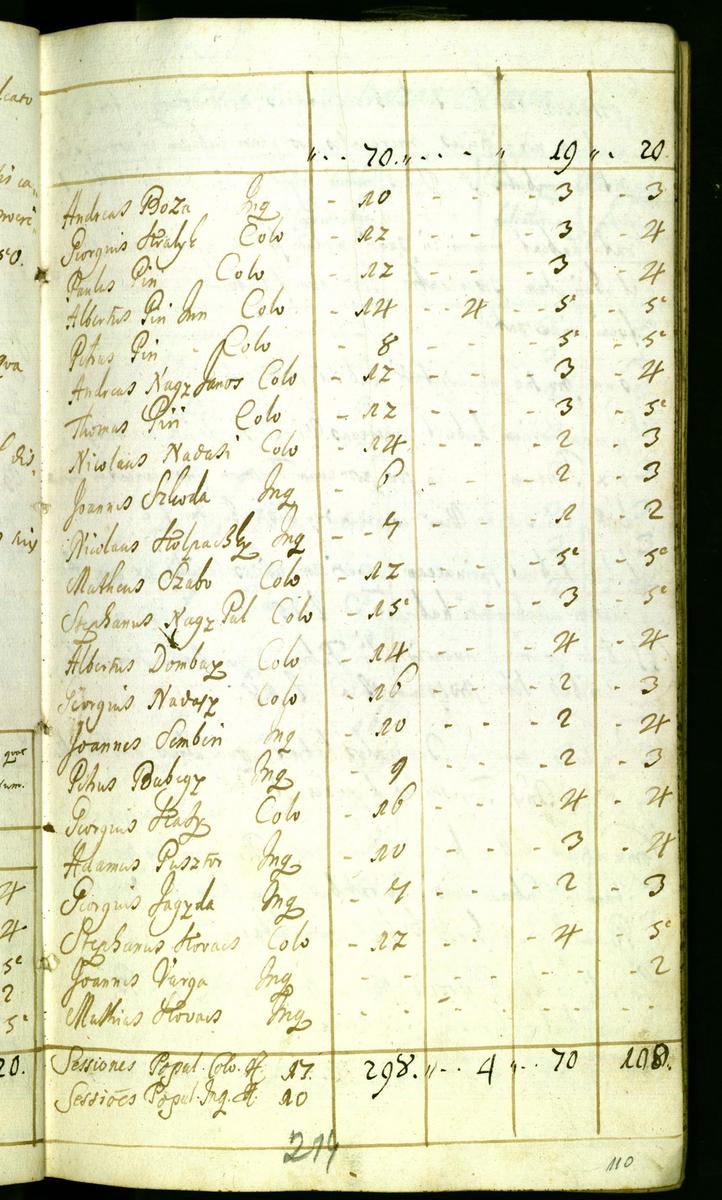 " - - 70. " - - - " 19 " - 20.
Andreas Boza Inq - 10 - - - 3 - 3
Georgius Kralik Colo - 12 - - - 3 - 4
Paulus Pin Colo - 12 - - - 3 - 4
Albertus Pin Jun Colo - 14 - - 4 - 5 - 5
Petrus Pin - Colo - 8 - - - 5 - 5
Andreas Nagy Janos Colo - 12 - - - 3 - 4
Thomas Pin Colo - 12 - - - 3 - 5
Nicolaus Nadasi Colo - 14 - - - 2 - 3
Joannes Szkoda Inq - 6 - - - 2 - 3
Nicolaus Inq - - 7 - - - 1 - 2
Matheus Szabo Colo - 12 - - - 5 - 5
Stephanus Nagy Pal Colo - 15 - - - 3 - 5
Albertus Dombay Colo - 14 - - - 4 - 4
Georgius Nadasy Colo - 16 - - - 2 - 3
Joannes Inq - 10 - - - 2 - 4
Petrus Inq - 9 - - - 2 - 3
Georgius Colo - 16 - - - 4 - 4
Adamus Pasztor Inq - 10 - - - 3 - 4
Georgius Jagyda Inq - 7 - - - 2 - 3
Stephanus Kovacs Colo - 12 - - - 4 - 5
Joannes Varga Inq - - - - - - - 2
Mathias Kovacs Inq - - - - - - - -
Sessiones Popul. Colo. 17. 298. " - - 4 " - - 70 108.
Sessiões Popul. Inq. 10
214
110